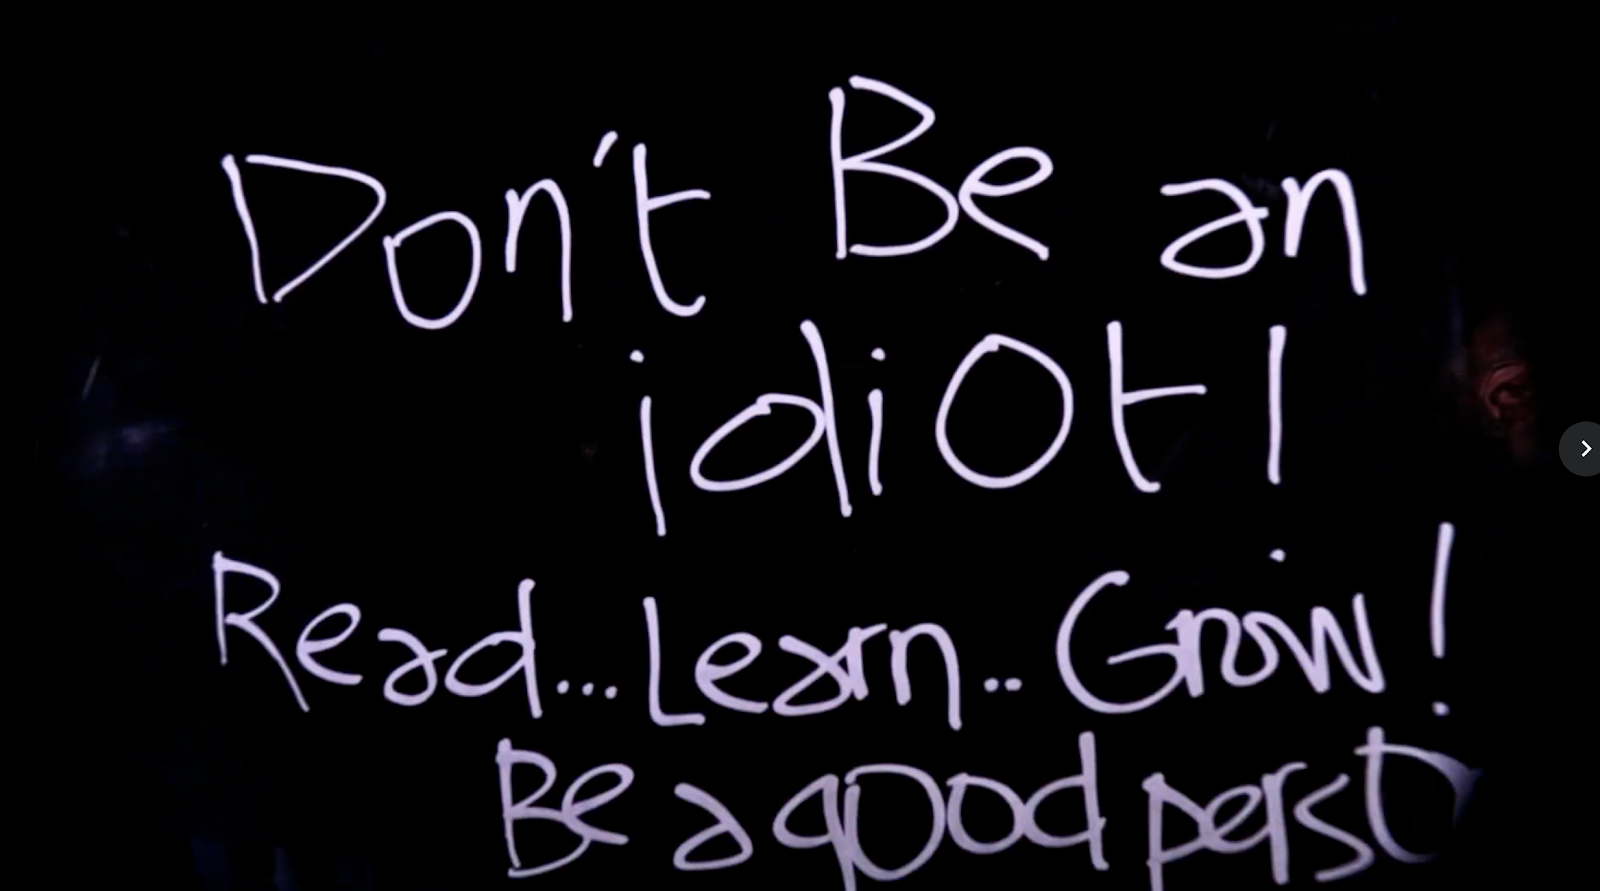 Don't Be an
idiOt!
Read... Learn.. Grow!
Be a good